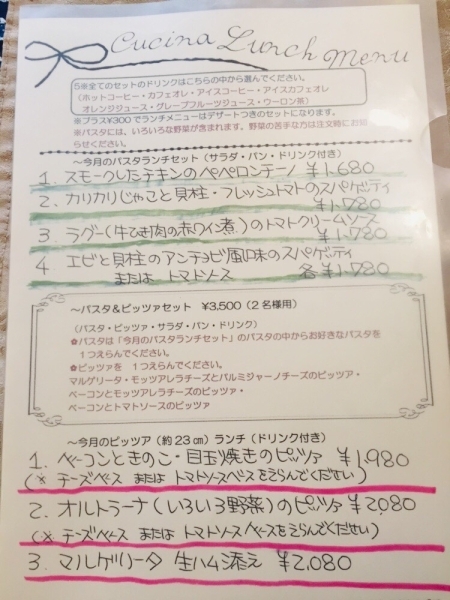 Cucina Lunch Menu
5※全てのセットのドリンクはこちらの中から選んでください。
(ホットコーヒー・カフェオレ・アイスコーヒー・アイスカフェオレ
オレンジジュース・グレープフルーツジュース・ウーロン茶)
※プラス¥300でランチメニューはデザートつきのセットになります。
※パスタには、いろいろな野菜が含まれます。野菜の苦手な方は注文時にお知
らせください。
～今月のパスタランチセット (サラダ・パン・ドリンク付き)
1. スモークしたチキンのペペロンチーノ ¥1,680
2. カリカリじゃこと貝柱・フレッシュトマトのスパゲッティ
¥1,780
3. ラグー(牛ひき肉の赤ワイン煮)のトマトクリームソース
¥1,780
4. エビと貝柱のアンチョビ風味のスパゲッティ
または トマトソース 各¥1,780
～パスタ&ピッツァセット ¥3,500 (2名様用)
(パスタ・ピッツァ・サラダ・パン・ドリンク)
✿パスタは「今月のパスタランチセット」のパスタの中からお好きなパスタを
1つえらんでください。
✿ピッツァを 1つえらんでください。
マルゲリータ・モッツアレラチーズとパルミジャーノチーズのピッツア・
ベーコンとモッツアレラチーズのピッツァ・
ベーコンとトマトソースのピッツァ
～今月のピッツア (約23㎝) ランチ (ドリンク付き)
1. ベーコンときのこ・目玉焼きのピッツァ ¥1,980
(※ チーズベース または トマトソースベースをえらんでください)
2. オルトラーナ(いろいろ野菜)のピッツァ ¥2,080
(※ チーズベース または トマトソースベースをえらんでください)
3. マルゲリータ 生ハム添え ¥2,080